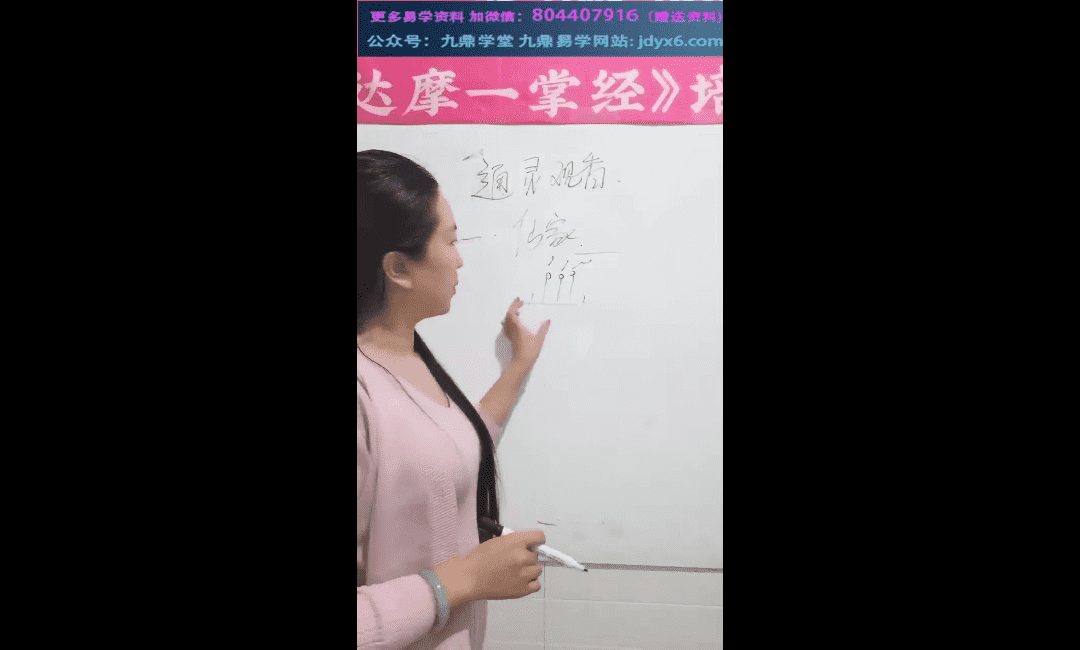 更多易学资料 加微信：804407916（赠送资料）
公众号：九鼎学堂 九鼎易学网站: jdyx6.com
达摩一掌经》培
通灵观香.
一. 仙家.